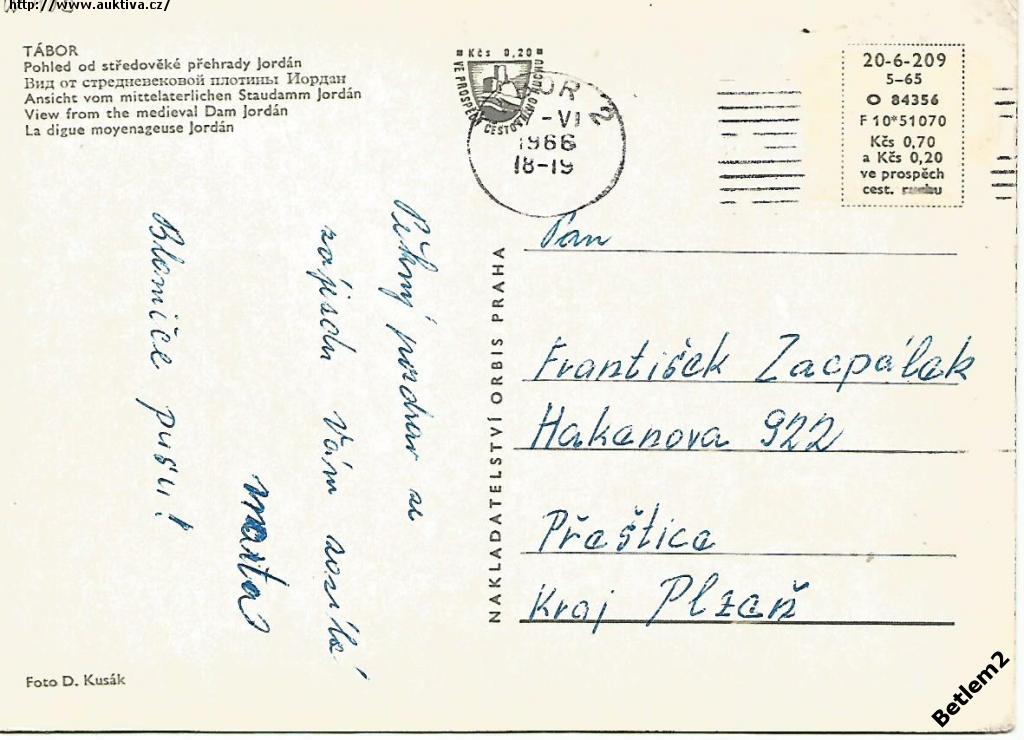 http://www.auktiva.cz/
TÁBOR
Pohled od středověké přehrady Jordán
Вид от стредневековой плотины Иордан
Ansicht vom mittelaterlichen Staudamm Jordán
View from the medieval Dam Jordán
La digue moyenageuse Jordán
Kčs 0,20
VE PROSPĚCH CESTOVNÍHO RUCHU
OR 2
-VI
1966
18-19
20-6-209
5-65
O 84356
F 10*51070
Kčs 0,70
a Kčs 0,20
ve prospěch
cest. ruchu
Pěkný pozdrav ze
zájezdu Vám zasílá
Marta
píšu!
NAKLADATELSTVÍ ORBIS PRAHA
Pan
František Zacpálek
Hakenova 922
Přeštice
Kraj Plzeň
Foto D. Kusák
Betlem2